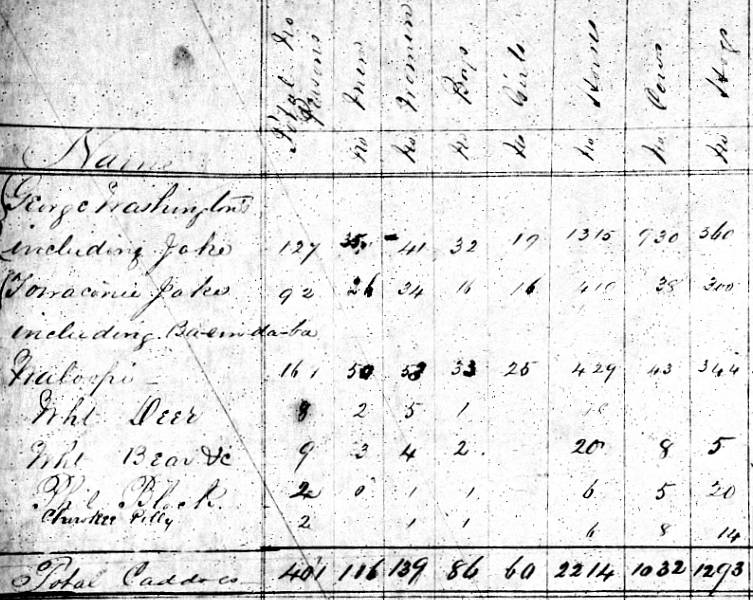 Name Total No Persons No Men No Women No Boys No Girls No Horses No Cows No Hogs
George Washington's
including Jake 127 35 41 32 19 1315 930 360
Towaconie Jake 92 26 34 16 16 410 38 300
including Ba-em-da-ba
161 50 53 33 25 429 43 344
Wht Deer 8 2 5 1
Wht Bear &c 9 3 4 2 20 8 5
Block 2 0 1 1 6 5 20
Cherokee 2 1 1 6 8 14
Total Caddoes 401 116 139 86 60 2214 1032 1293